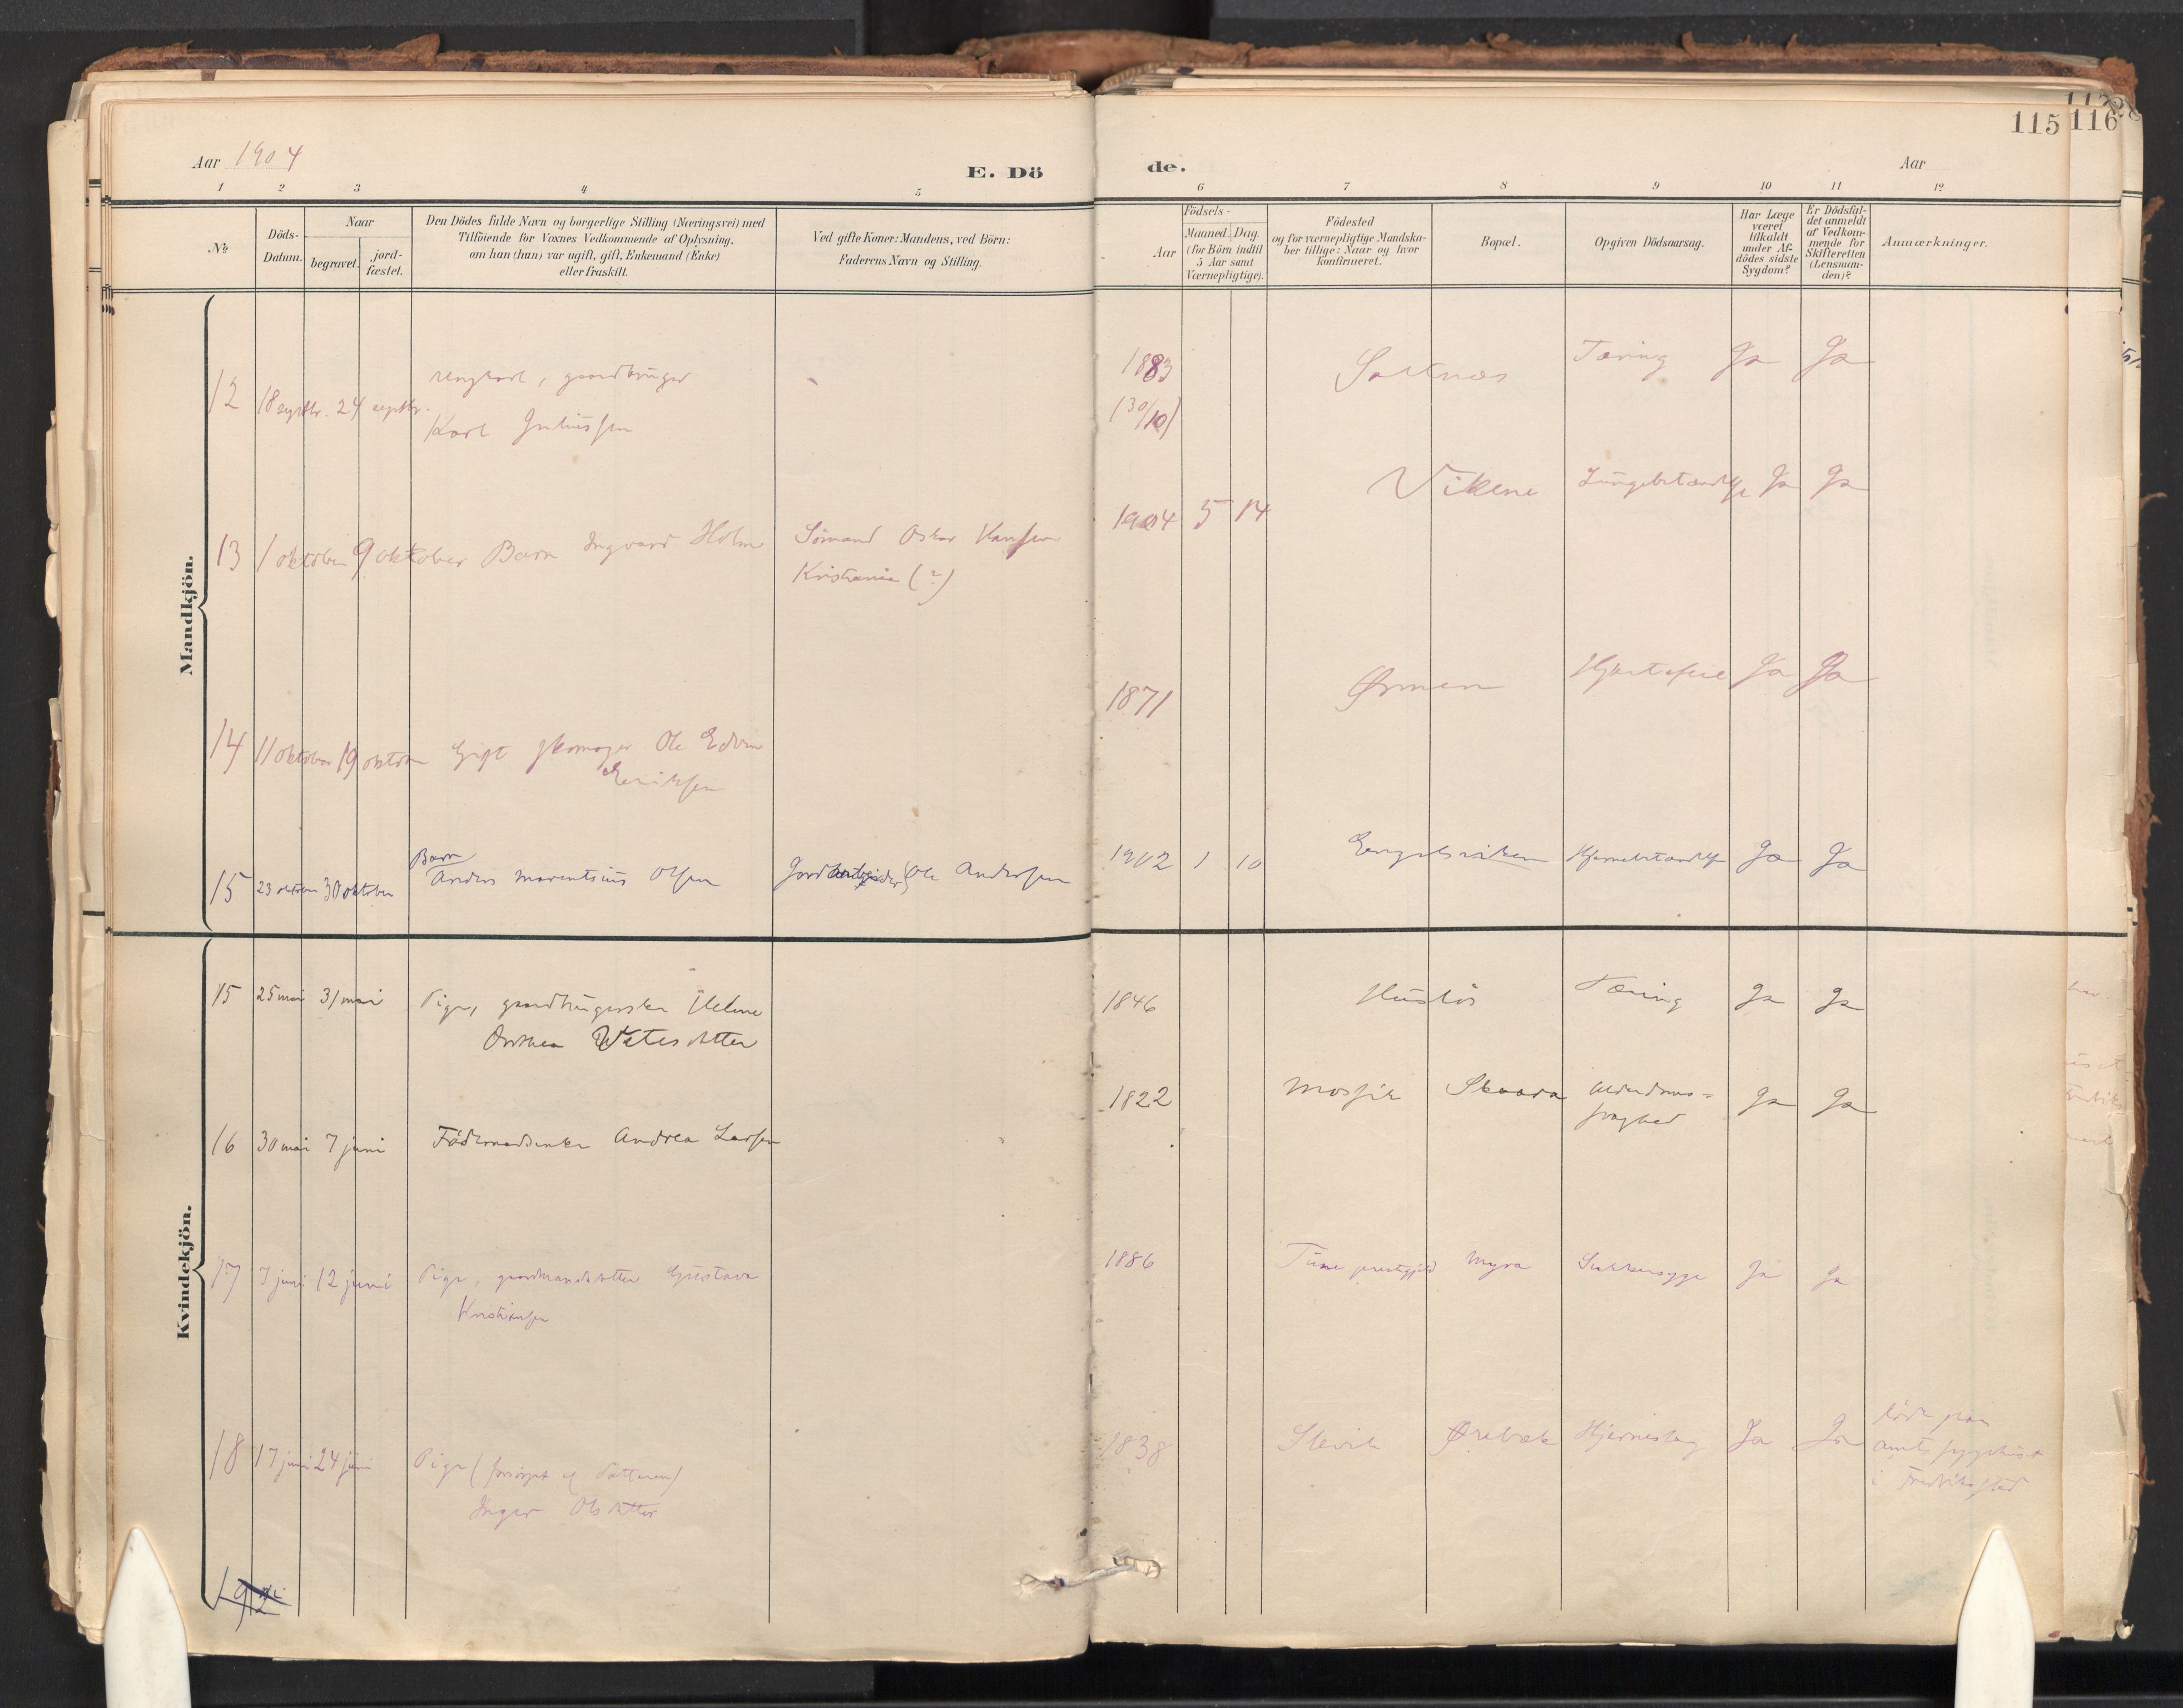 115 116
Aar 1904
E. Dö
de.
Aar
1 2 3 4 5 6 7 8 9 10 11 12
No
Döds-
Datum.
Naar
begravet.
jord-
fæstet.
Den Dödes fulde Navn og borgerlige Stilling (Næringsvei) med
Tilföiende for Voxnes Vedkommende af Oplysning,
om han (hun) var ugift, gift, Enkemand (Enke)
eller fraskilt.
Ved gifte Koner: Mandens, ved Börn:
Faderens Navn og Stilling.
Födsels-
Aar
Maaned. Dag.
(for Börn indtil
5 Aar samt
Værnepligtige).
Födested
og for værnepligtige Mandska-
ber tillige: Naar og hvor
konfirmeret.
Bopæl.
Opgiven Dödsaarsag.
Har Læge
været
tilkaldt
under Af-
dödes sidste
Sygdom?
Er Dödsfal-
det anmeldt
af Vedkom-
mende for
Skifteretten
(Lensman-
den)?
Anmærkninger.
Mandkjön.
12 18 septbr. 24 septbr. ungkarl, gaardbruger
Karl Juliussen
1883
(30/10)
Tæring Ja Ja
13 1 oktober 9 oktober Barn Ingvard Holm
Sömand Oskar Hansen
Kristiania (?)
1904 5 14 Vikene Lungebetændelse Ja Ja
14 11 oktober 19 oktober Gift skomager Ole Edvin
Eriksen
1871 Ørmen Hjertefeil Ja Ja
15 23 oktober 30 oktober Barn
Anders Marentsius Olsen
Jordarbeider Ole Andersen
1902 1 10 Engelsviken Hjernebetændelse Ja Ja
Kvindekjön.
15 25 mai 31 mai Pige, gaardbrugerske Helene
Dorthea
1846 Huslös Tæring Ja Ja
16 30 mai 7 juni Födemandsenke Andrea Larsen
1822 Skaara Alderdoms-
svaghed Ja Ja
17 7 juni 12 juni Pige, gaardmandsdatter Gustava
Kristiansen
1886 Tune prestegjeld Myra Sukkersyge Ja Ja
18 17 juni 24 juni Pige (forsörget af Datteren)
Inger Olsdatter
1838 Slevik Ørebæk Hjerneslag Ja Ja
döde paa
amtssygehuset
i Fredrikstad
19